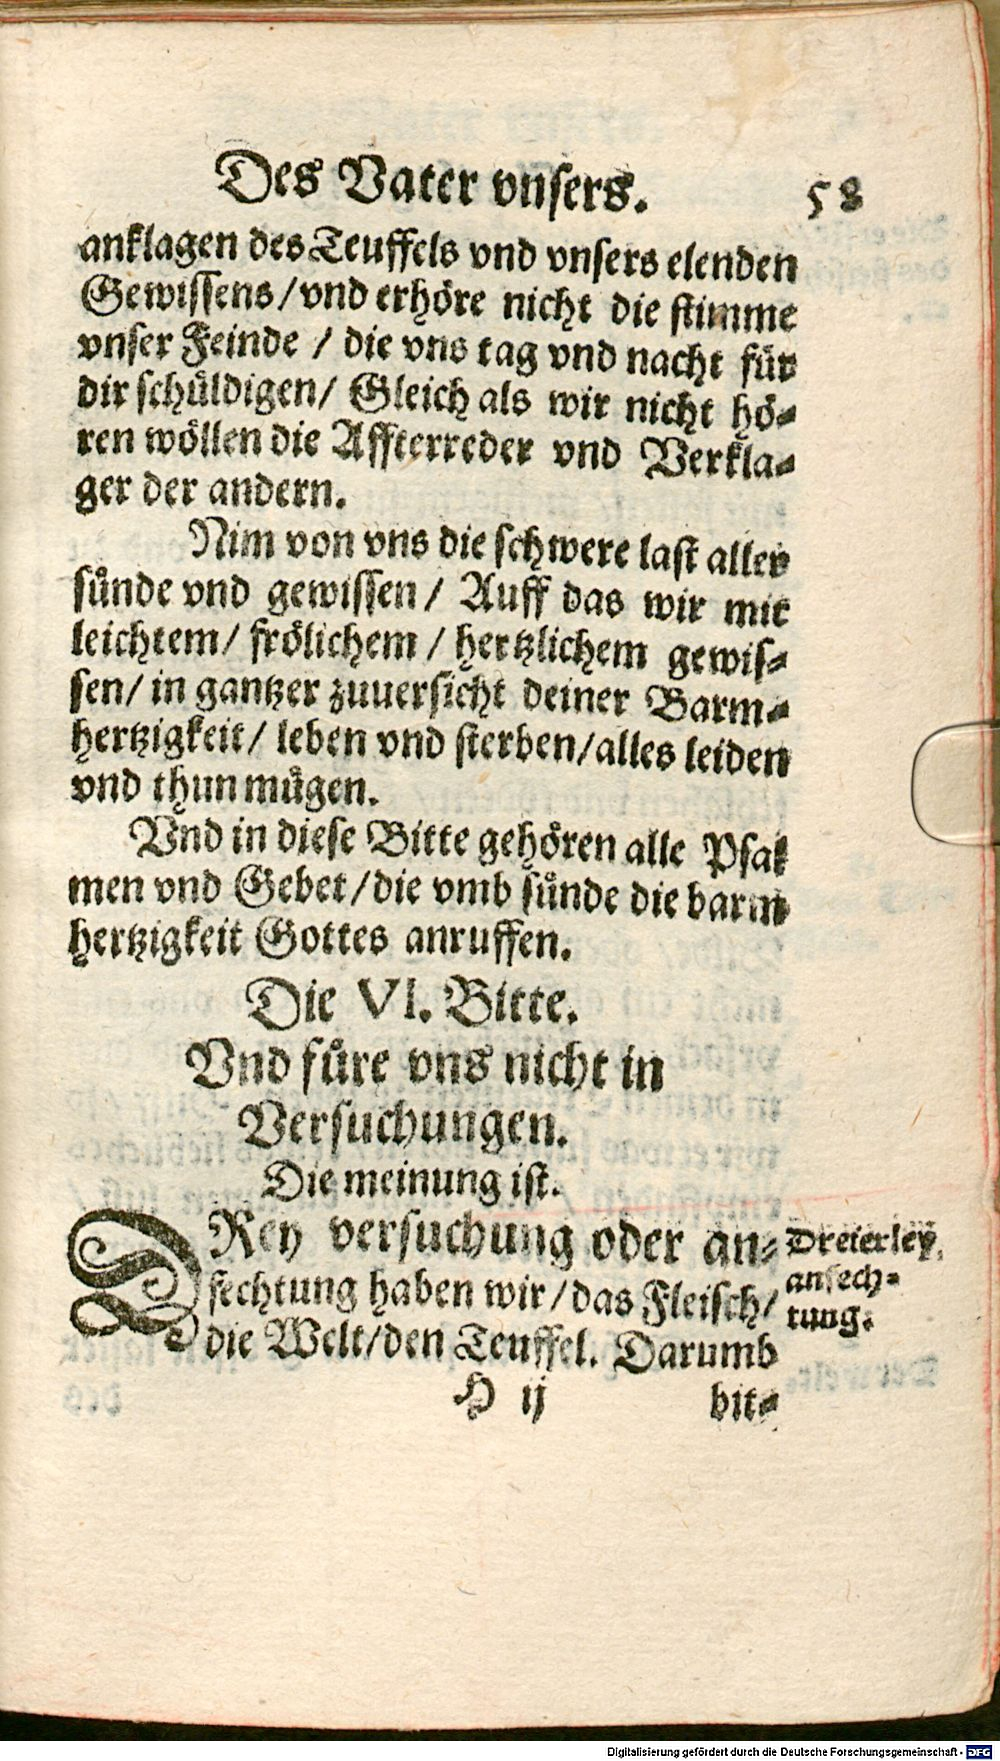 Des Vater vnsers. 58
anklagen des Teuffels vnd vnsers elenden
Gewissens/vnd erhöre nicht die stimme
vnser Feinde / die vns tag vnd nacht für
dir schüldigen/ Gleich als wir nicht hö-
ren wöllen die Affterreder vnd Verkla-
ger der andern.
Nim von vns die schwere last aller
sünde vnd gewissen / Auff das wir mit
leichtem/ frölichem / hertzlichem gewis-
sen/ in gantzer zuuersicht deiner Barm-
hertzigkeit/ leben vnd sterben/alles leiden
vnd thun mügen.
Vnd in diese Bitte gehören alle Psal
men vnd Gebet/die vmb sünde die barm
hertzigkeit Gottes anruffen.
Die VI. Bitte.
Vnd füre vns nicht in
Versuchungen.
Die meinung ist.
DRey versuchung oder an-
fechtung haben wir/das Fleisch/
die Welt/den Teuffel. Darumb
Dreierley
anfech-
tung.
H ij bit-
Digitalisierung gefördert durch die Deutsche Forschungsgemeinschaft - DFG